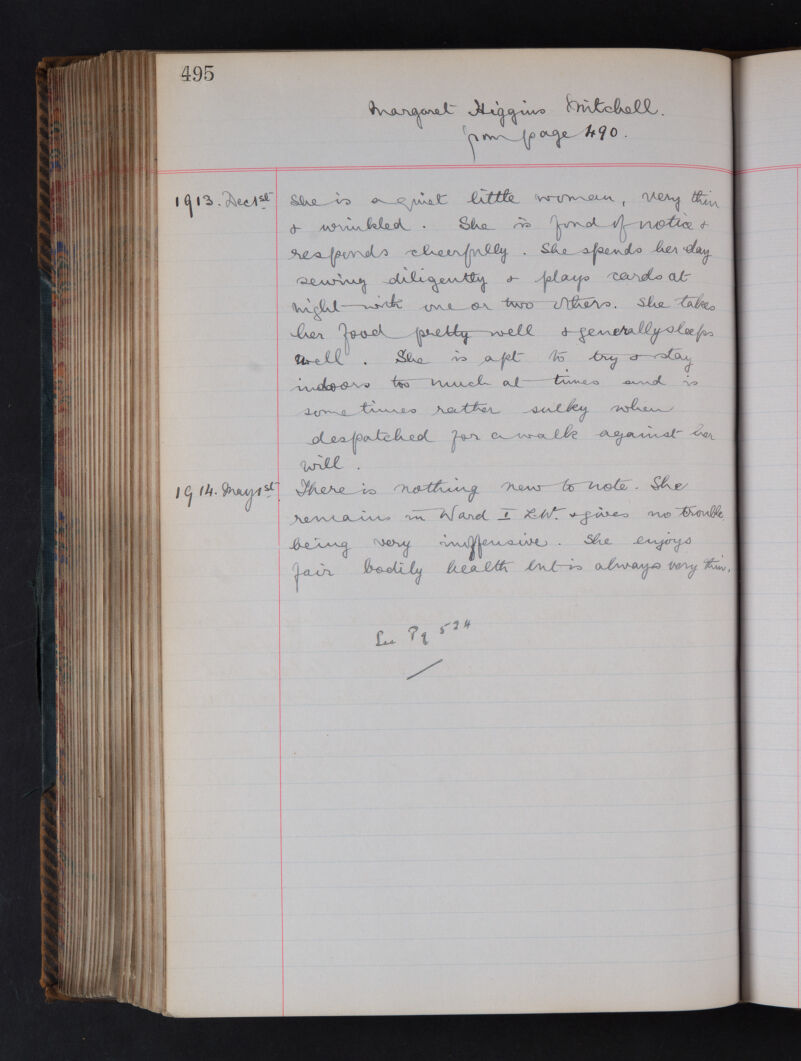 495
Margaret Higgins Mitchell.
from page 490.
1913. Dec 1st She is a quiet little woman, very thin
& wrinkled. She is fond of notice &
responds cheerfully. She spends her day
sewing diligently & plays cards at
night with one or two others. She takes
her food pretty well & generally sleeps
well. She is apt to try & stay
indoors too much at times and is
sometimes rather sulky when
despatched for a walk against her
will.
1914. May 1st There is nothing new to note. She
remains in Ward I L.W. & gives no trouble
being very inoffensive. She enjoys
fair bodily health but is always very thin.
See Pg 524